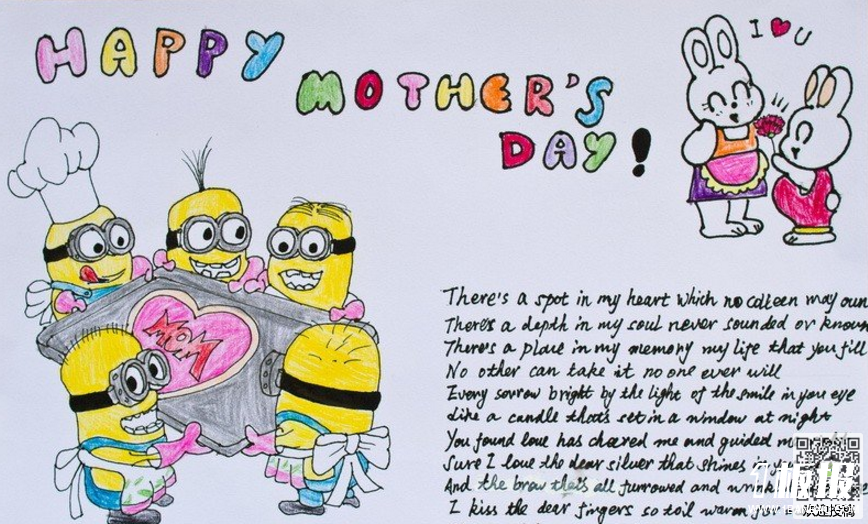 HAPPY
MOTHER'S
DAY!
I ♥ U
MOM
There's a spot in my heart which no may
There's a depth in my soul never sounded or known
There's a place in my memory my life that you fill
No other can take it no one ever will
Every sorrow bright by the light of the smile in you eye
Like a candle that's set in a window at night
You found love has cheered me and guided
Sure I love the dear silver that shines in
And the brow that's all furrowed and
I kiss the dear fingers so toil